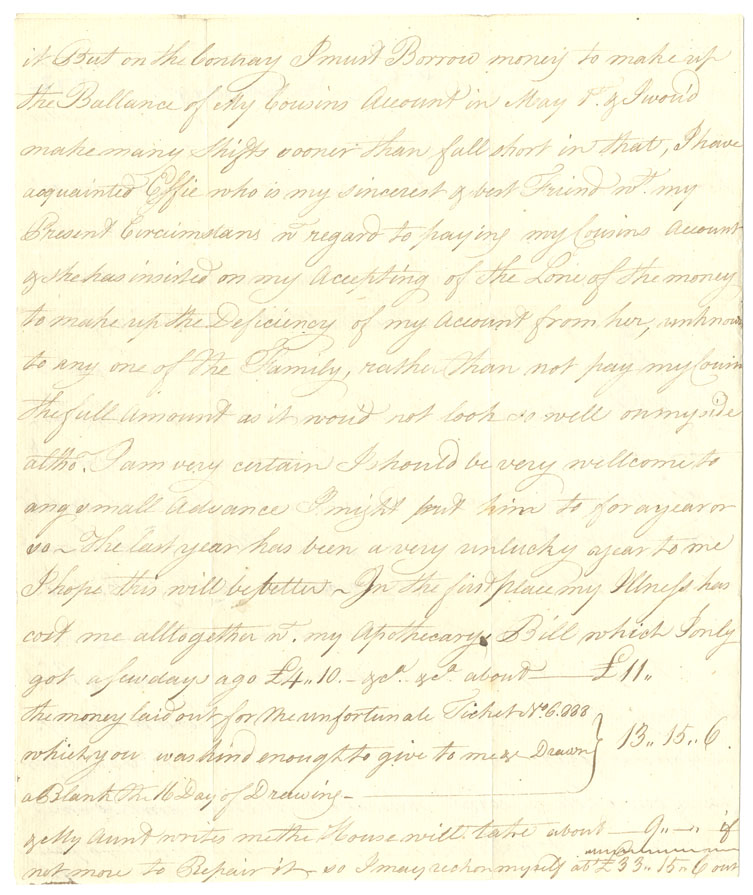 it But on the Contray I must Borrow money to make up
the Ballance of My Cousins Account in May 1st. & I wou'd
make many shifts sooner than fall short in that, I have
acquainted Effie who is my sincerest & best Friend wt. my
Present Circumstans wt regard to paying my Cousins Account
& she has insisted on my Accepting of the Lone of the money
to make up the Deficiency of my Account from her, unknown
to any one of the Family, rather than not pay my Cousin
the full Amount as it wou'd not look so well on my side
altho' I am very certain I should be very wellcome to
any small Advance I might put him to for a year or
so ~ The last year has been a very unlucky year to me
I hope this will be better ~ In the first place my Illness has
cost me alltogether wt. my Apothecarys Bill which I only
got a few days ago £4,,10.- &ca. &ca. about — £11,,
the money laid out for the unfortunate Ticket No. 6.888
which you was kind enough to give to me & Drawn } 13,, 15,, 6.
a Blank the 16 Day of Drawing -
& My Aunt writes me the House will take about — 9,, —,, if
not more to Repair it - so I may reckon myself abt £33,, 15,, 6 out